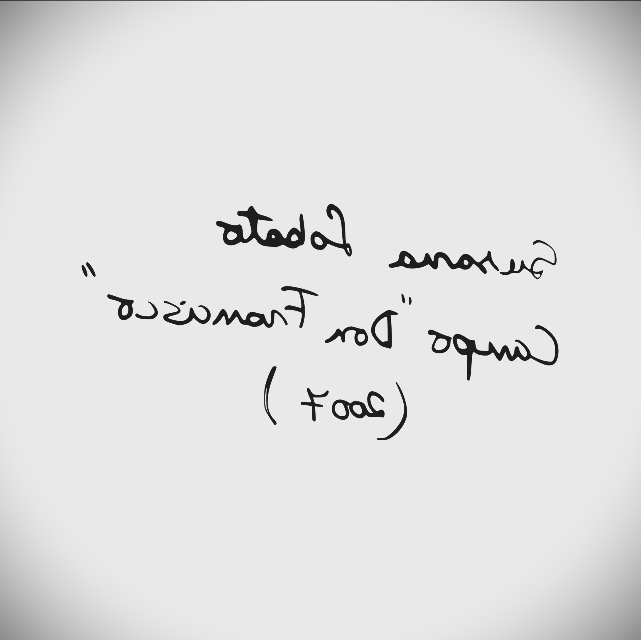 Susana Lobato
Campo "Don Francisco"
(2007)